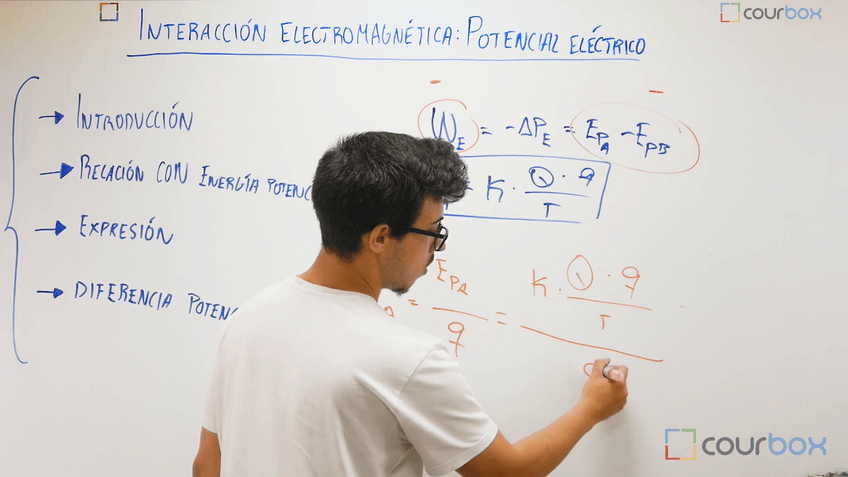 INTERACCIÓN ELECTROMAGNÉTICA: POTENCIAL ELÉCTRICO
courbox
→ INTRODUCCIÓN
→ RELACIÓN CON ENERGÍA
→ EXPRESIÓN
→ DIFERENCIA
- -
W_E = -ΔP_E = E_PA - E_PB
K · Q · q
r
E_PA / q = K · Q · q / r
courbox